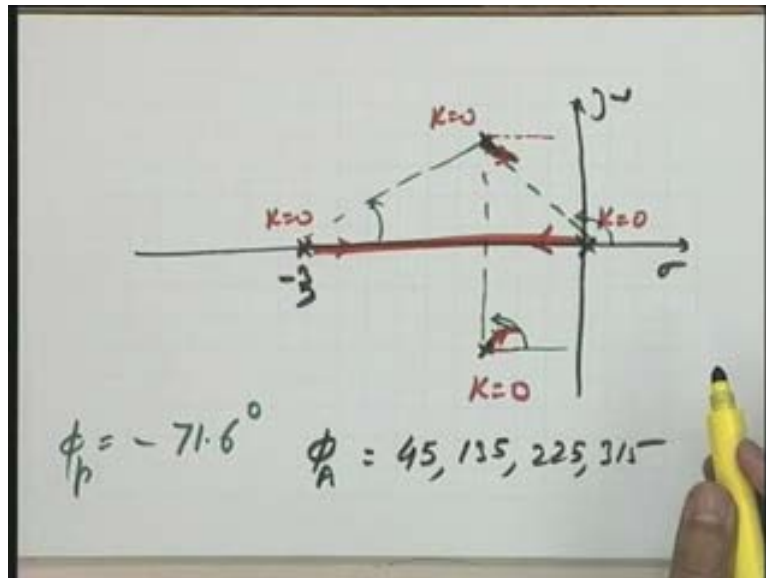 jω
K=0
K=0
K=0
-3
σ
K=0
ϕp = - 71.6° ϕA = 45, 135, 225, 315